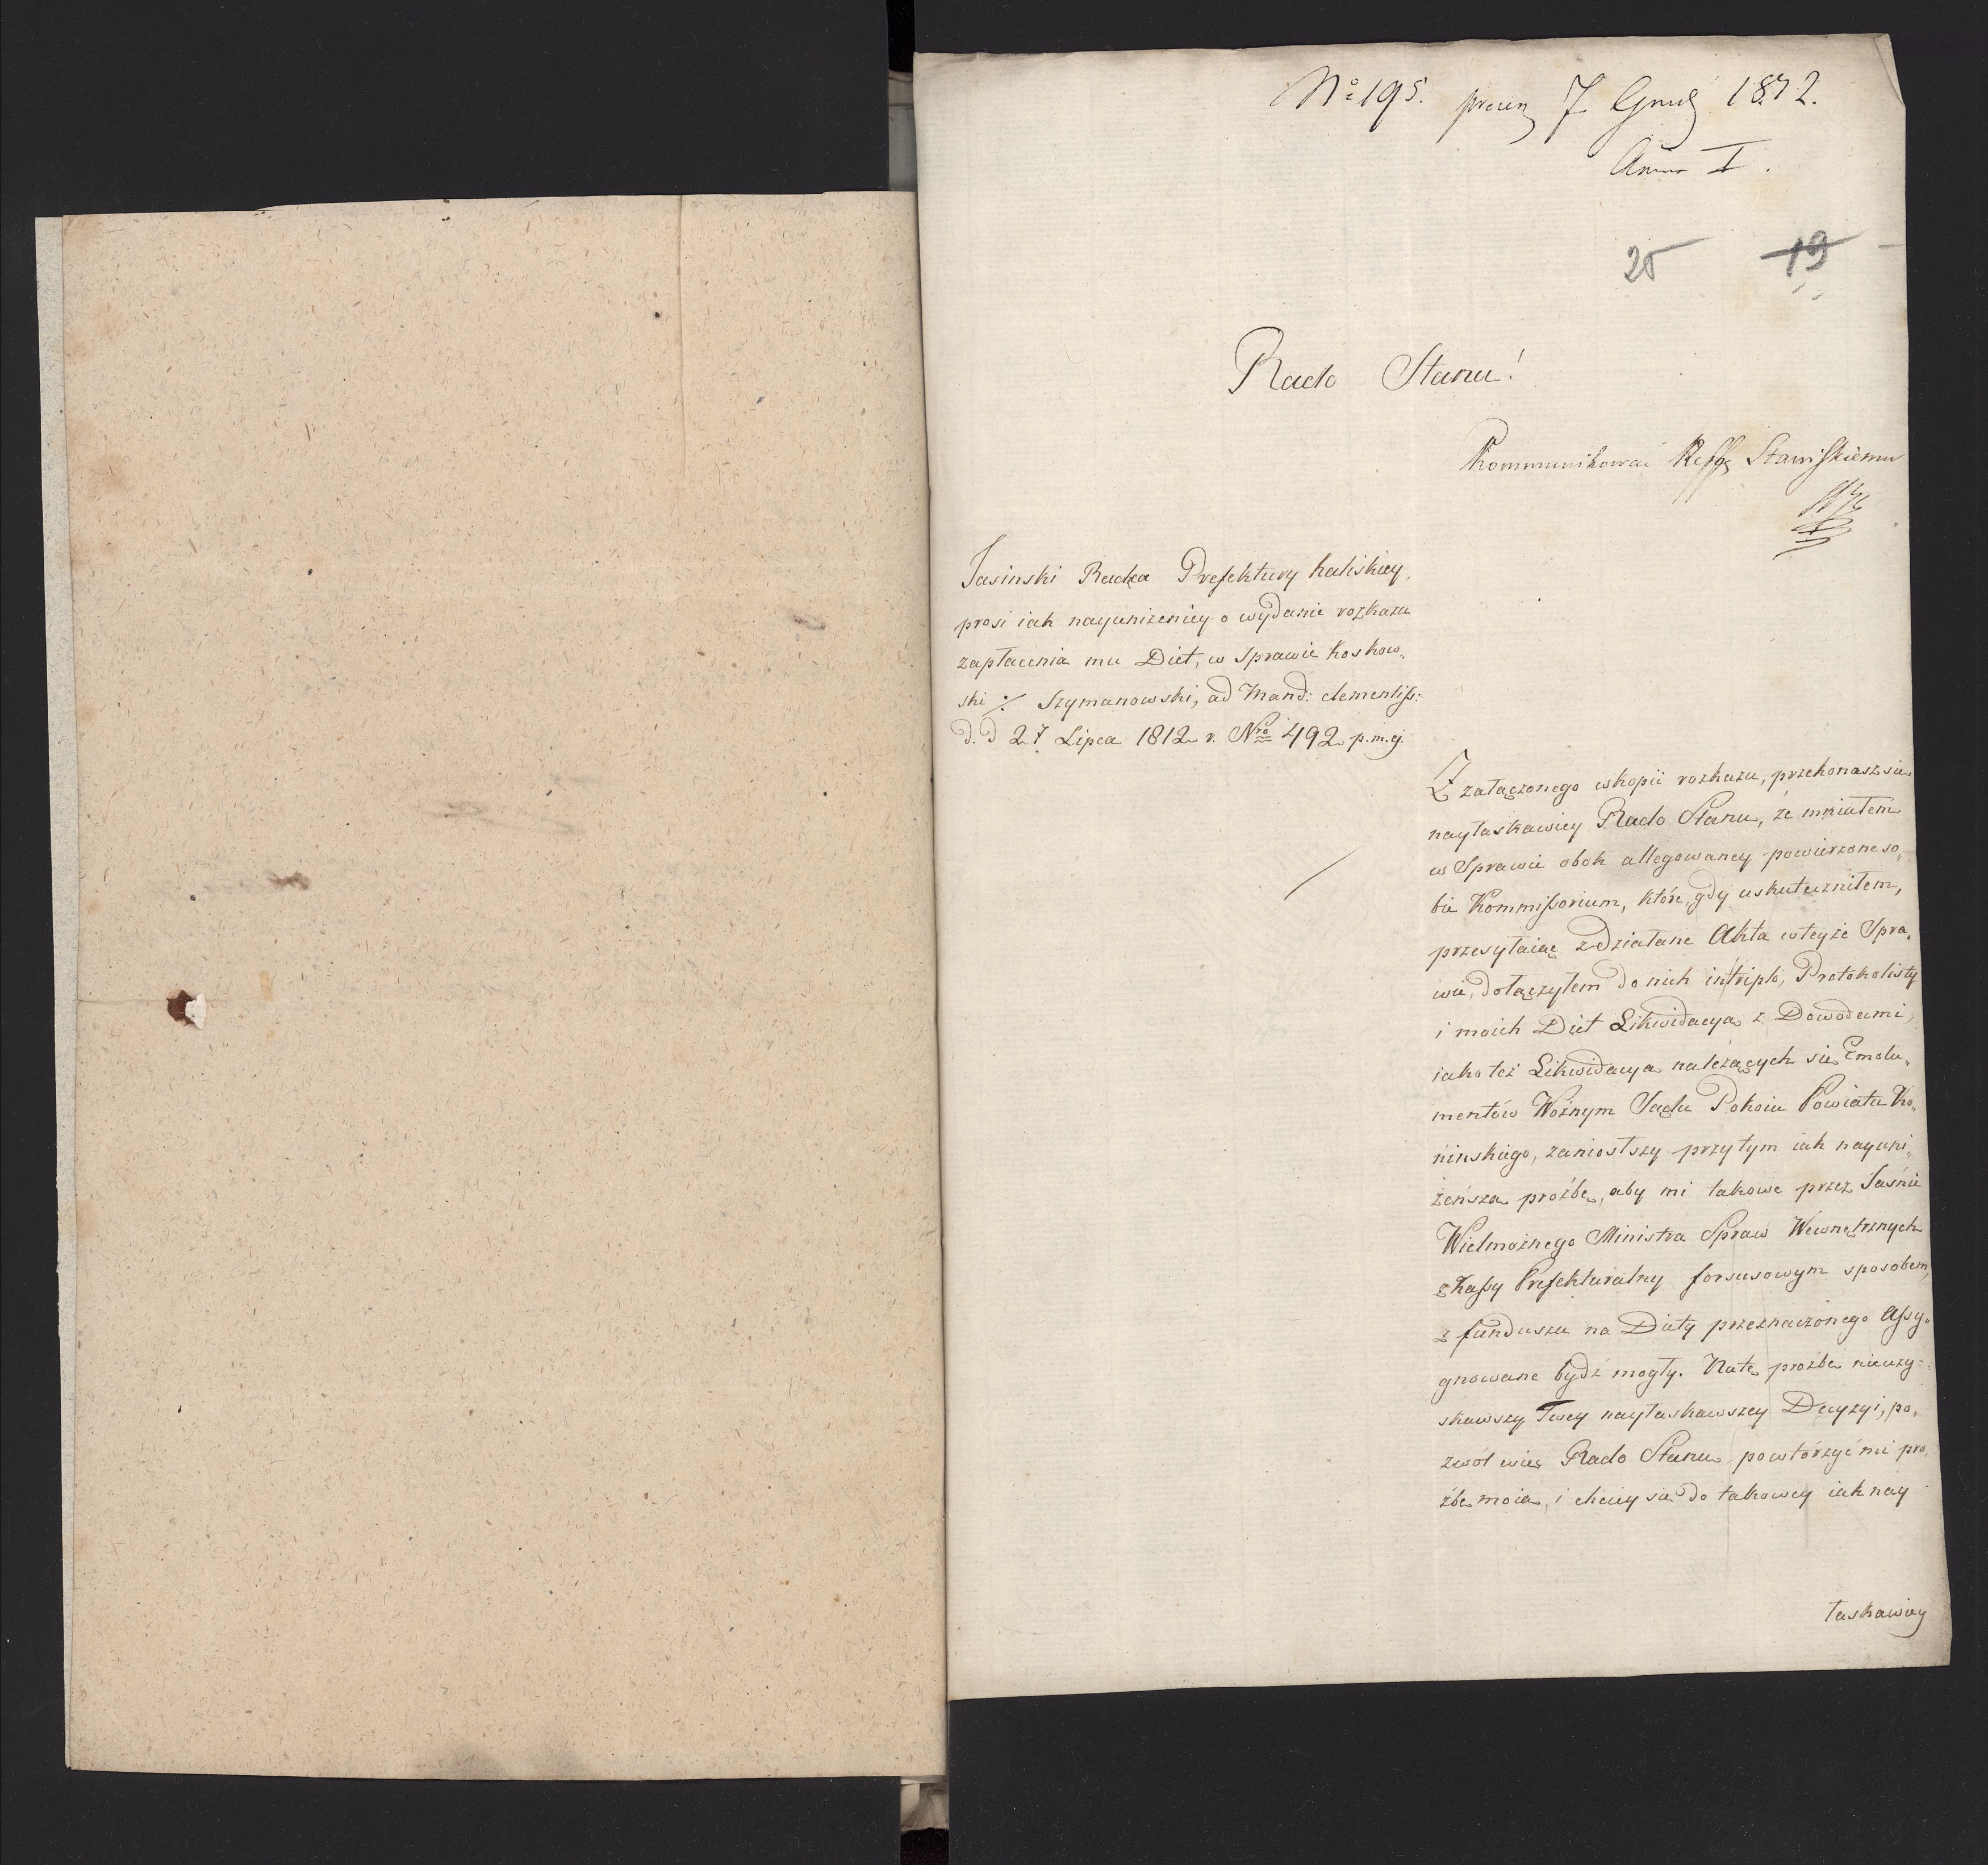 No 195. 7 Grud 1812.
Anno I.
25 19
Rado Stanu!
Kommunikować Reffer Stawiskiemu
Jasinski Radca Prefektury Kaliskiey,
prosi iak nayunizeniey o wydanie rozkazu
zapłacenia mu Diet, w Sprawie Koskow„
ski ./. Szymanowski, ad Mand: clementiss:
d. d 27 Lipca 1812 r. Nro 492 p.m.ej.
Z załączonego wkopii rozkazu, przekonasz sie
nayłaskawiey Rado Stanu, że miałem
w Sprawie obok allegowaney powierzone so„
bie Kommissorium, które, gdy uskuteczniłem,
przesyłaiąc zdziałane Akta wteyże Spra„
wie, dołączyłem do nich intriplo, Protokolisty
i moich Diet Likwidacyą z Dowodami,
iako też Likwidacyą należących się Emolu„
mentów Woźnym Sądu Pokoiu Powiatu Ko„
nińskiego, zaniosłszy przytym iak nayuni„
żeńszą prośbę, aby mi takowe przez Jaśnie
Wielmożnego Ministra Spraw Wewnętrznych
z Kassy Prefekturalny forsusowym sposobem,
z funduszu na Diety przeznaczonego Assy„
gnowane bydź mogły. Natę prozbę nieuzy„
skawszy Twey nayłaskawszey Decyzyi, po„
zwól więc Rado Stanu powtórzyć mi pro„
źbę moią, i chciey się do takowey iak nay
łaskawiey